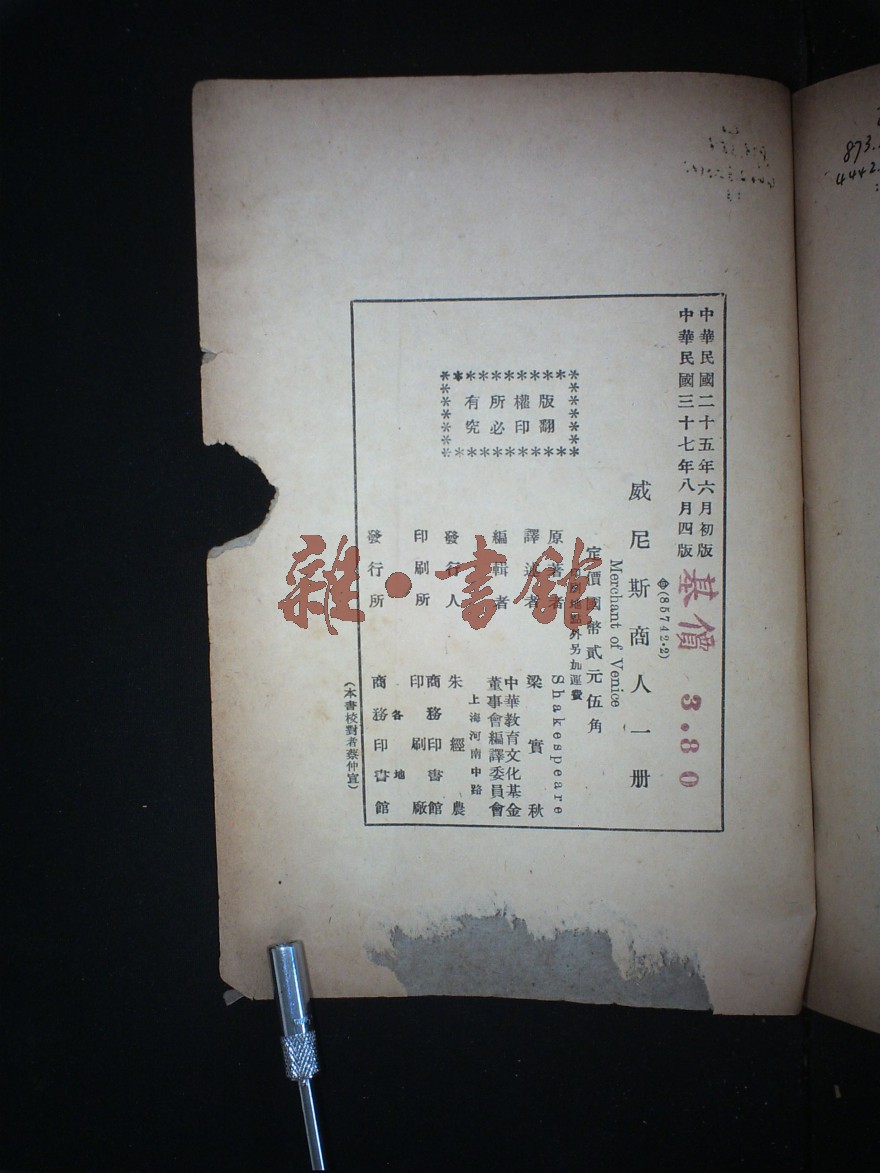 中華民國二十五年六月初版
中華民國三十七年八月四版
基價 3.80
(85742·2)
威尼斯商人一册
Merchant of Venice
定價國幣貳元伍角
地點外另加運費
版權所有
翻印必究
原著者 Shakespeare
譯述者 梁實秋
編輯者 中華教育文化基金董事會編譯委員會
上海河南中路
發行人 朱經農
印刷所 商務印書館印刷廠
各地
發行所 商務印書館
(本書校對者蔡仲宣)
雜·書館
873.
4442.